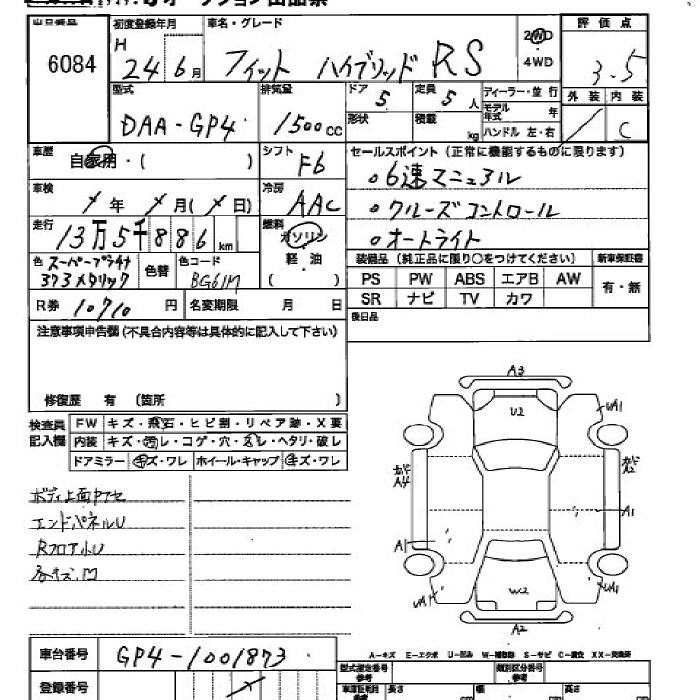 オークション出品票
出品番号 初度登録年月 車名・グレード 評価点
6084 H 24 6月 フィット ハイブリッド RS 2WD 4WD 3.5
型式 排気量 ドア 定員 ディーラー・並行 外装 内装
DAA-GP4 1500cc 5 5人 モデル年式 年 C
形状 積載 kg ハンドル 左・右
車歴 自家用・( ) シフト F6 セールスポイント(正常に機能するものに限ります)
。6速マニュアル
車検 年 月( 日) 冷房 AAC 。クルーズコントロール
走行 13万5千886km 燃料 ガソリン 軽油 ( ) 。オートライト
色 スーパープラチナ 色替 色コード 装備品(純正品に限り○をつけてください) 新車保証書
メタリック BG61M PS PW ABS エアB AW 有・無
R券 10710円 名変期限 月 日 SR ナビ TV カワ
後日品
注意事項申告欄(不具合内容等は具体的に記入して下さい)
修復歴 有 (箇所 )
検査員記入欄 FW キズ・飛石・ヒビ割・リペア跡・X要
内装 キズ・汚レ・コゲ・穴・スレ・ヘタリ・破レ
ドアミラー キズ・ワレ ホイール・キャップ キズ・ワレ
エンドパネルU
Rフロア小U
A3
U2 UA1
A4 A2
A1
A1
UA1 W2 UA1
A2
車台番号 GP4-1001873
A-キズ E-エクボ U-凹み W-補修跡 S-サビ C-腐食 XX-交換済
登録番号 型式指定番号 類別区分番号
長さ cm 幅 cm 高さ cm